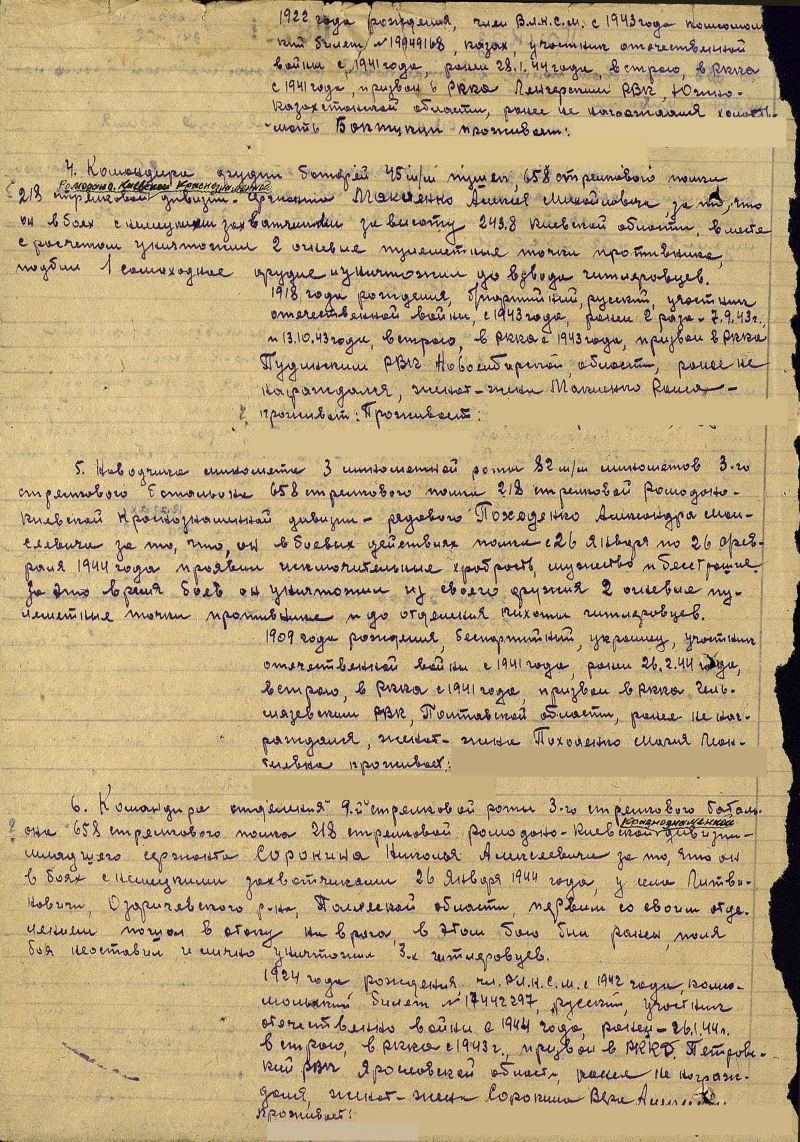 1922 года рождения, член В.Л.К.С.М. с 1943 года комсомоль-
ский билет, №19949168, казах, участник отечественной
войны с 1941 года, ранен 28.1.44 года, в строю, в РККА
с 1941 года, призван в РККА Ленгерским РВК, Южно-
казахстанской области, ранее не награждался
мать проживает:
4. Командира орудия батареи 45 м/м пушек, 658 стрелкового полка
Ромодано-Киевской Краснознаменной
218 стрелковой дивизии - сержанта Макиенко Михайловича, за то, что
он в боях с немецкими захватчиками за высоту 243.8 Киевской области, вместе
с расчетом уничтожил 2 огневые пулеметные точки противника,
подбил 1 самоходное орудие и уничтожил до взвода гитлеровцев.
1918 года рождения, б/партийный, русский, участник
отечественной войны, с 1943 года, ранен 2 раза - 7.9.43 г.,
и 13.10.43 года, в строю, в РККА с 1943 года, призван в РККА
Пудинским РВК Новосибирской области, ранее не
награждался, женат - жена Макиенко
проживает: Проживает:
5. Наводчика миномета 3 минометной роты 82 м/м минометов 3-го
стрелкового батальона 658 стрелкового полка 218 стрелковой Ромодано-
Киевской Краснознаменной дивизии - рядового Походенко Александра Мои-
сеевича за то, что, он в боевых действиях полка с 26 января по 26 фев-
раля 1944 года проявил исключительные храбрость, мужество и бесстрашие.
За это время боев он уничтожил из своего оружия 2 огневые пу-
леметные точки противника и до отделения пехоты гитлеровцев.
1909 года рождения, беспартийный, украинец, участник
отечественной войны с 1941 года, ранен 26.2.44 года,
в строю, в РККА с 1941 года, призван в РККА Гель-
мязевским РВК, Полтавской области, ранее не наг-
раждался, женат - жена Походенко Мария Леон-
тьевна проживает:
6. Командира отделения 9-й стрелковой роты 3-го стрелкового баталь-
Краснознаменной
она 658 стрелкового полка 218 стрелковой Ромодано-Киевской дивизии -
младшего сержанта Сорокина Николая Алексеевича за то, что он
в боях с немецкими захватчиками 26 января 1944 года, у села Литви-
новичи, Озаричевского р-на, Полесской области первым со своим отде-
лением пошел в атаку на врага, в этом бою был ранен, поля
боя не оставил и лично уничтожил 3-х гитлеровцев.
1924 года рождения, чл. ВЛ.К.С.М. с 1942 года, комсо-
мольский билет №17442297, русский, участник
отечественной войны с 1944 года, ранен - 26.1.44 г.
в строю, в РККА с 1943 г., призван в РККА Петров-
ский РВК Ярославской области, ранее не награж-
дался, женат - жена Сорокина Вера
проживает: